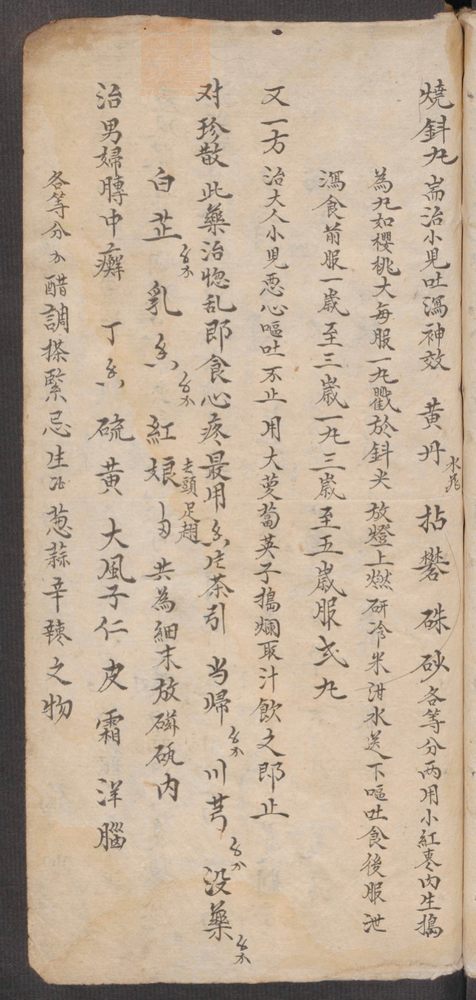 燒針丸 耑治小児吐瀉神效 黄丹水飛 拈礬 硃砂 各等分兩用小紅棗内生搗
為丸如櫻桃大每服一丸戳於針尖放燈上燃研冷米泔水送下嘔吐食後服泄
瀉食前服一嵗至三嵗一丸三嵗至五嵗服弍丸
又一方 治大人小児惡心嘔吐不止用大蔓蔔英子搗爛取汁飲之即止
对珍散 此藥治惚乱即食心疼最用 茶引 当帰 川芎 没藥
白芷 乳香 紅娘 去頭足翅 共為細末放磁瓶内
治男婦膞中癖 丁香 硫黄 大風子仁 皮霜 洋腦
各等分 醋調搽緊忌生冷葱蒜辛辣之物